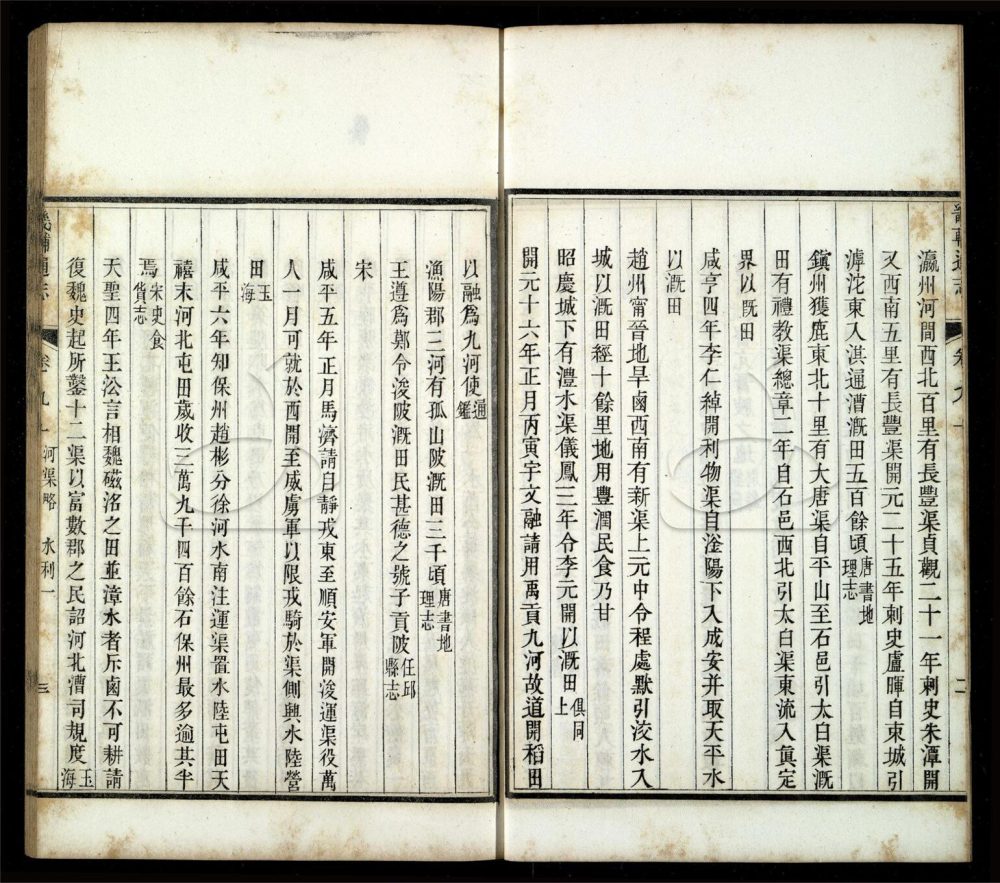 瀛州河間西北百里有長豐渠貞觀二十一年刺史朱潭開
又西南五里有長豐渠開元二十五年刺史盧暉自東城引
滹沱東入淇通漕溉田五百餘頃唐書地理志
鎭州獲鹿東北十里有大唐渠自平山至石邑引太白渠溉
田有禮教渠總章二年自石邑西北引太白渠東流入眞定
界以溉田
咸亨四年李仁綽開利物渠自滏陽下入成安并取天平水
以溉田
趙州甯晉地旱鹵西南有新渠上元中令程處默引洨水入
城以溉田經十餘里地用豐潤民食乃甘
昭慶城下有澧水渠儀鳳三年令李元開以溉田俱同上
開元十六年正月丙寅宇文融請用禹貢九河故道開稻田
二
以融爲九河使通鑑
漁陽郡三河有孤山陂溉田三千頃唐書地理志
王遵爲鄭令浚陂溉田民甚德之號子貢陂任邱縣志
宋
咸平五年正月馬濟請自靜戎東至順安軍開浚運渠役萬
人一月可就於西開至威虜軍以限戎騎於渠側興水陸營
田玉海
咸平六年知保州趙彬分徐河水南注運渠置水陸屯田天
禧末河北屯田歲收三萬九千四百餘石保州最多逾其半
焉宋史食貨志
天聖四年王沿言相魏磁洺之田並漳水者斥鹵不可耕請
復魏史起所鑿十二渠以富數郡之民詔河北漕司規度玉海
畿輔通志
河渠略 水利一
三